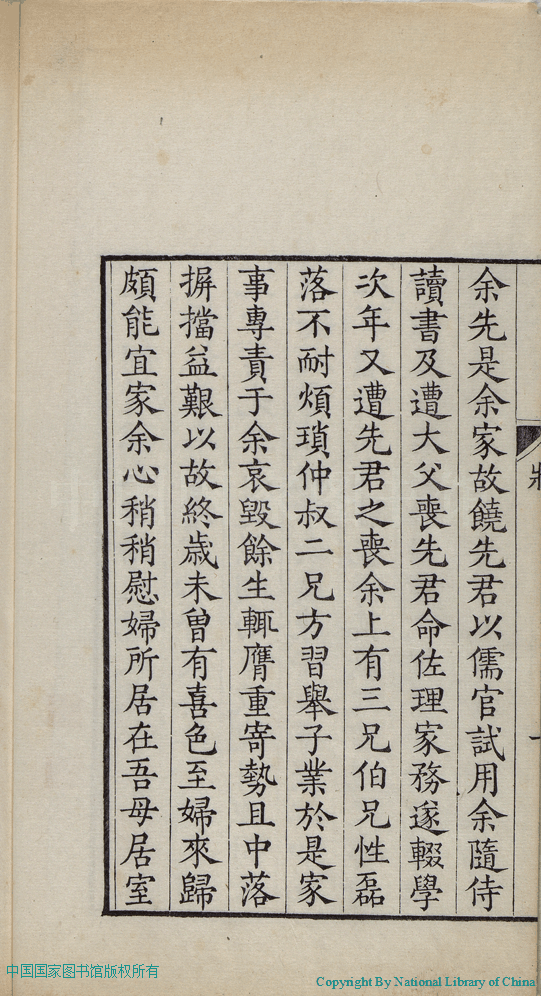 余先是余家故饒先君以儒官試用余隨侍
讀書及遭大父喪先君命佐理家務遂輟學
次年又遭先君之喪余上有三兄伯兄性磊
落不耐煩瑣仲叔二兄方習舉子業於是家
事專責于余哀毀餘生輒膺重寄勢且中落
摒擋益艱以故終歲未曾有喜色至婦來歸
頗能宜家余心稍稍慰婦所居在吾母居室
中国国家图书馆版权所有
Copyright By National Library of China